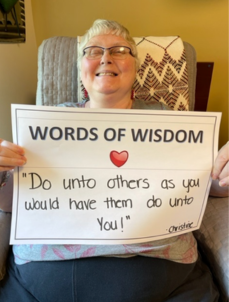 WORDS OF WISDOM
"Do unto others as you
would have them do unto
You!"
-Christine